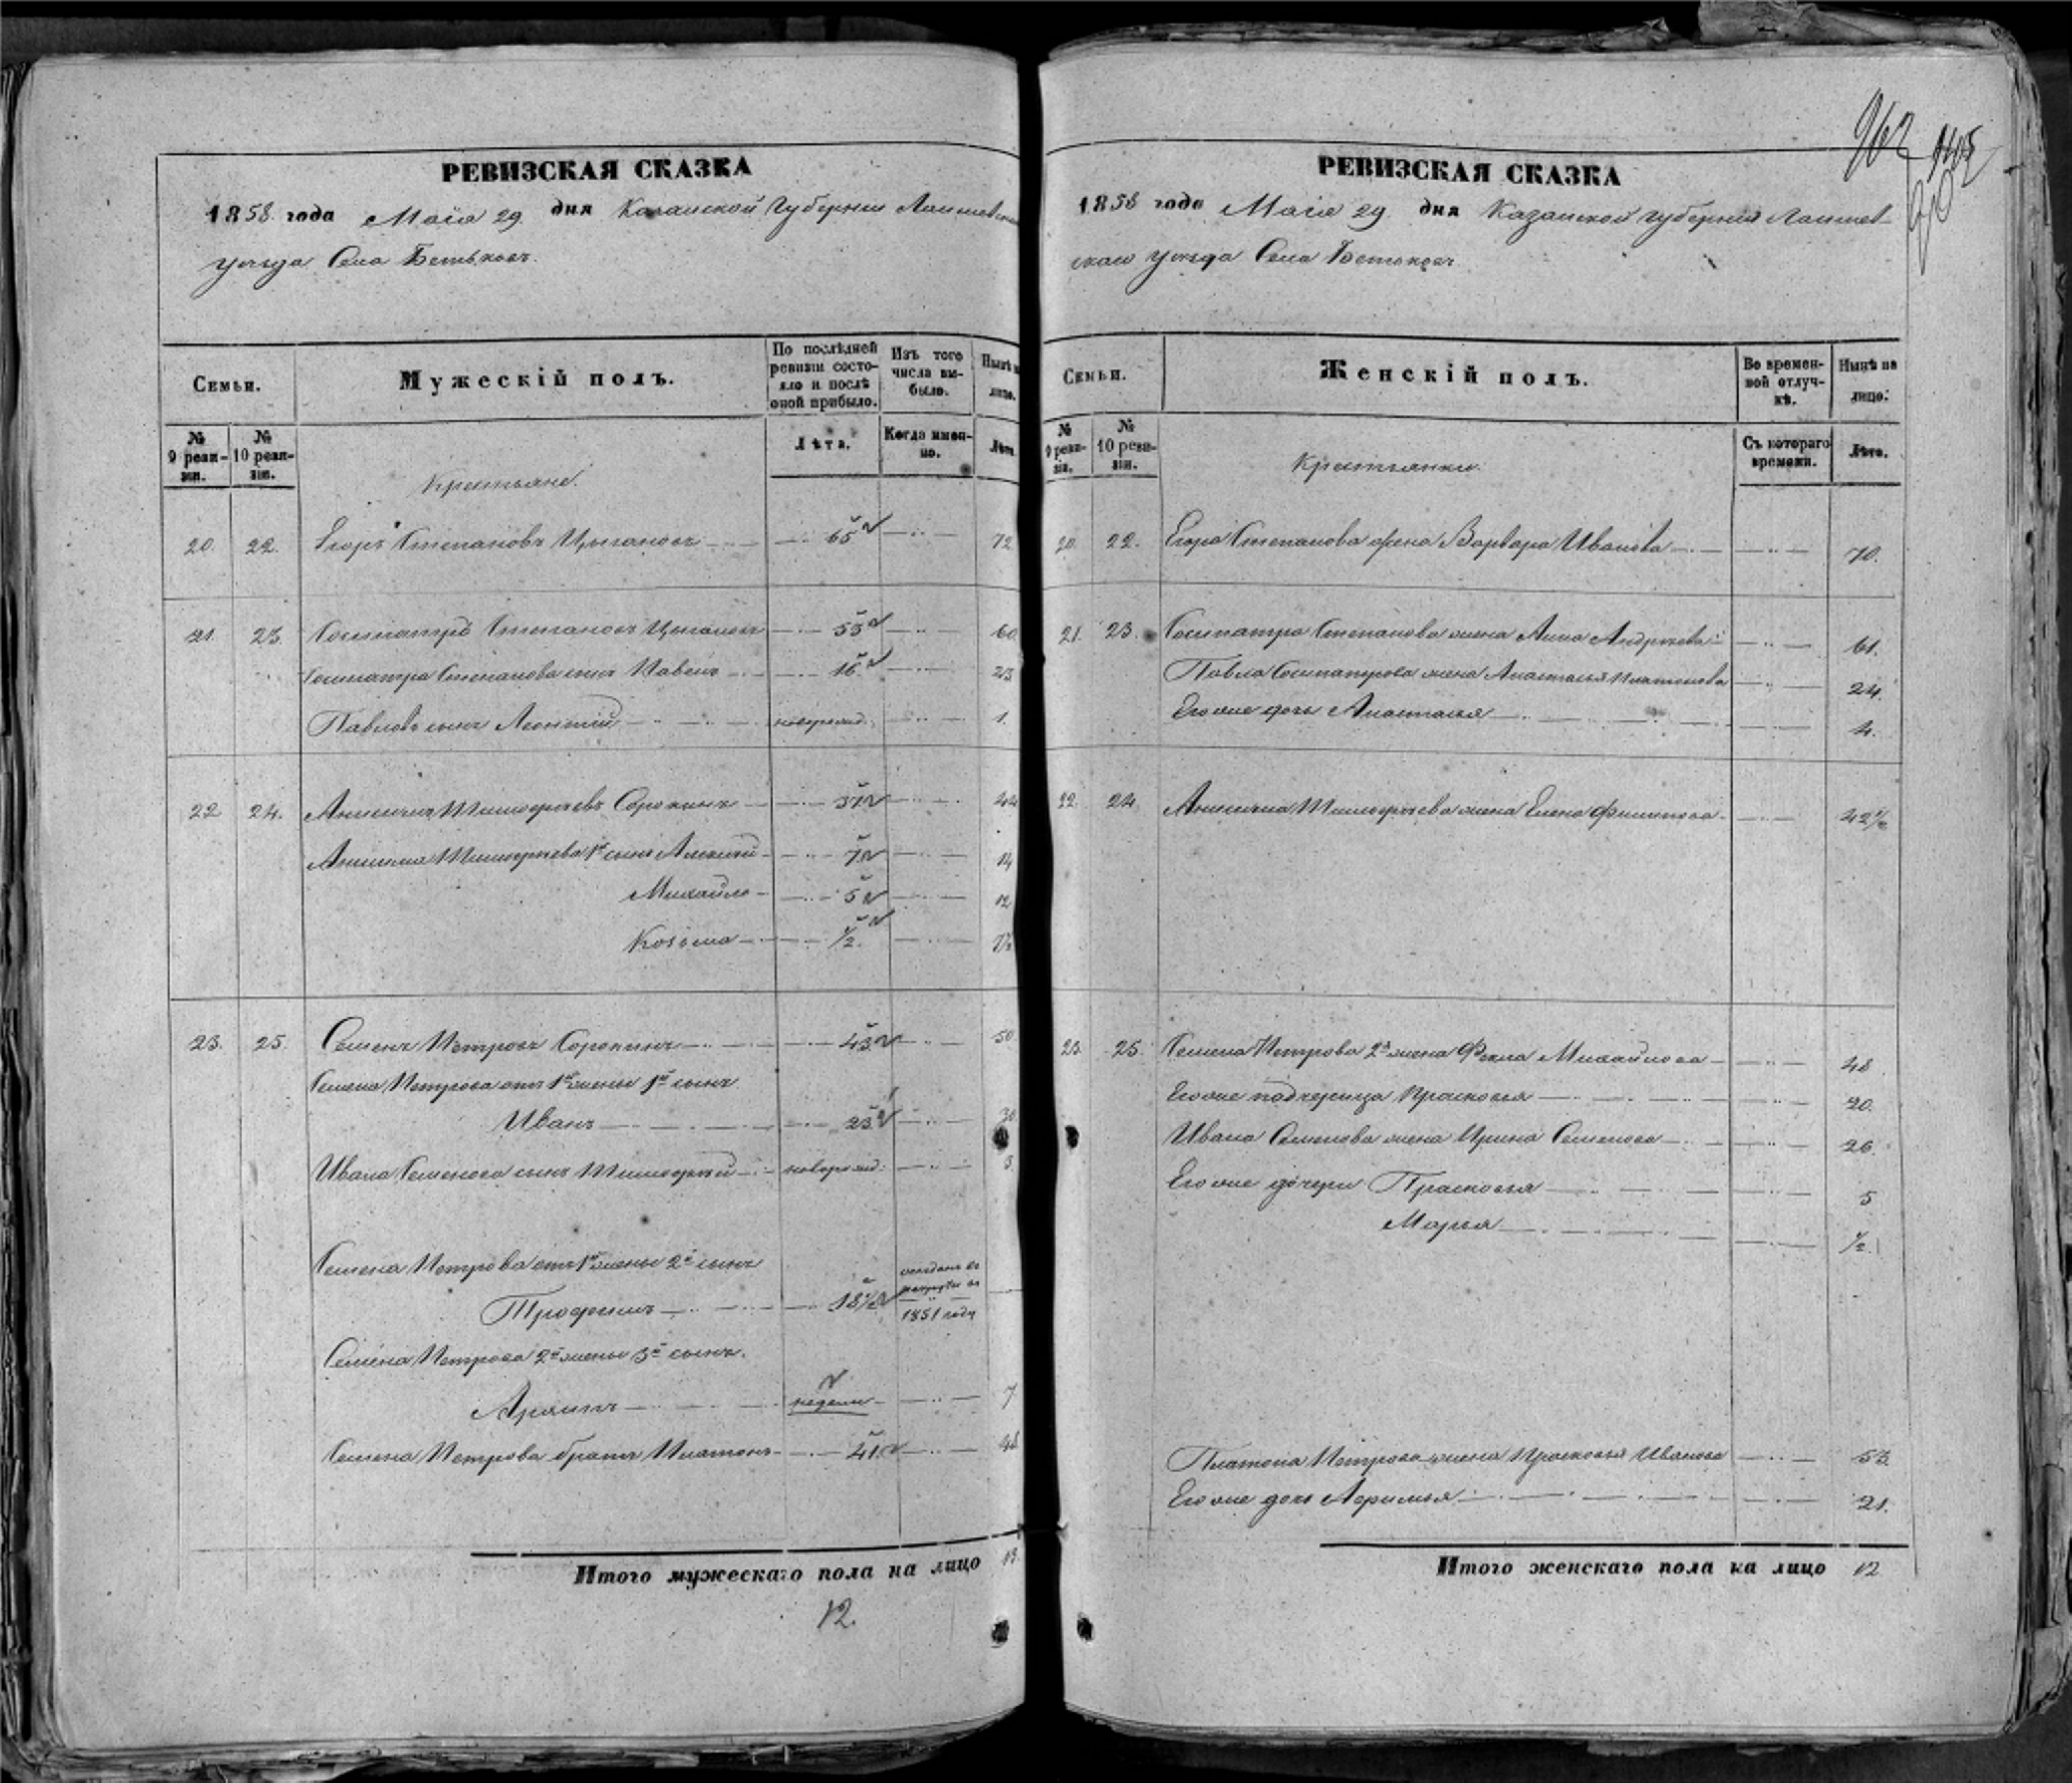 962
1405
РЕВИЗСКАЯ СКАЗКА
1858 года Маія 29 дня Казанской Губерніи Лаишевскаго
уѣзда Села Бетьковъ.
Семьи.
Мужескій полъ.
По послѣдней ревизіи состояло и послѣ оной прибыло.
Изъ того числа выбыло.
Нынѣ на лицо.
№ 9 ревизіи.
№ 10 ревизіи.
Лѣта.
Когда именно.
Лѣта.
Крестьяне.
20. 22. Егоръ Степановъ Цыгановъ 65 72
21. 23. Сосипатръ Степановъ Цыгановъ 53 60
Сосипатра Степанова сынъ Павелъ 16 23
Павловъ сынъ Леонтій новорожд. 1.
22 24. Анисимъ Тимофѣевъ Сорокинъ 37 44
Анисима Тимофѣева 1й сынъ Алексѣй 7 14
Михайло 5 12
Козьма 1/2 7 1/2
23. 25. Семенъ Петровъ Сорокинъ 43 50
Семена Петрова отъ 1й жены 1й сынъ
Иванъ 23 30
Ивана Семенова сынъ Тимофѣй новорожд. 3.
Семена Петрова отъ 1й жены 2й сынъ
Трофимъ 18 1/2 отданъ въ рекруты въ 1851 году
Семена Петрова 2й жены 3й сынъ.
недели 7
Семена Петрова братъ Платонъ 41 48
Итого мужескаго пола на лицо 12.
12.
РЕВИЗСКАЯ СКАЗКА
1858 года Маія 29 дня Казанской губерніи Лаишев-
скаго уѣзда Села Бетьковъ
Семьи.
Женскій полъ.
Во временной отлучкѣ.
Нынѣ на лицо.
№ 9 ревизіи.
№ 10 ревизіи.
Съ котораго времени.
Лѣта.
Крестьянки.
20. 22. Егора Степанова жена Варвара Иванова 70.
21. 23. Сосипатра Степанова жена Анна Андреева 61.
Павла Сосипатрова жена Анастасья Платонова 24.
Его же дочь Анастасья 4.
22. 24. Анисима Тимофѣева жена Елена Филипова 42 1/2
23. 25. Семена Петрова 2я жена Фекла Михайлова 48.
Его же падчерица Прасковья 20.
Ивана Семенова жена Ирина Семенова 26.
Его же дочери Прасковья 5
Марья 1/2.
Платона Петрова жена Прасковья Иванова 53.
Его же дочь Афимья 21.
Итого женскаго пола на лицо 12